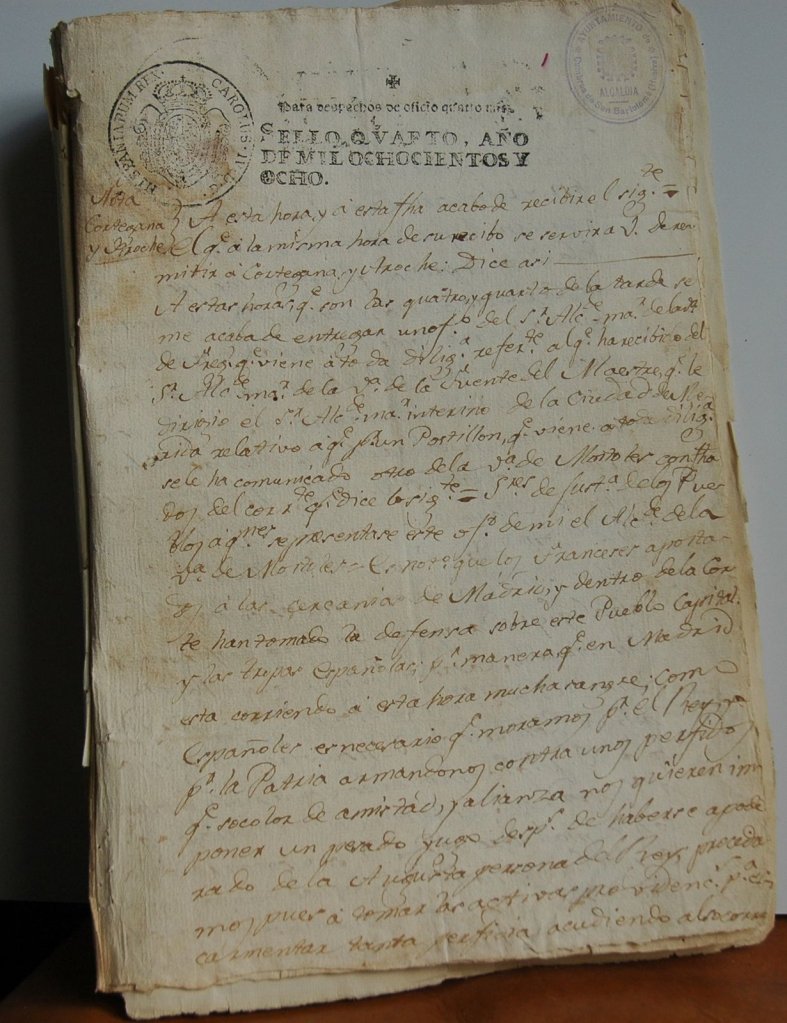 HISPANIARUM REX. CAROLUS IV D.G.
AYUNTAMIENTO de
ALCALDIA
Para despachos de oficio quatro mrs.
SELLO QVARTO, AÑO
DE MIL OCHOCIENTOS Y
OCHO.
Nota
Cortegana
y Aroche
A esta hora, y a esta fha acabo de recibir el sigte =
El qe. a la misma hora de su recibo se servira V. de re
mitir a Cortegana, y Aroche: Dice asi
A estas horas qe. son las quatro, y quarto de la tarde se
me acaba de entregar un ofo. del Sr. Alce. mar. de la
de Freg. qe. viene a toda dilig.a referte. al qe. ha recibido del
Sr. Alce. mar. de la Va. de la Fuente del Maestre, qe. le
dirigio el Sr. Alce. mar. interino de la Ciudad de Me
rida relativo a qe. pr. un Postillon, qe. viene a toda diliga.
se le ha comunicado otro de la va. de Mostoles con fha
dos del corrte. qe. dice lo sigte. = Sres. de Justa. de los Pue
blos a qnes. se presentase este ofo. de mi el Alce. de la
Va. de Mostoles = Es noto. que los Franceses aposta
dos a las cercanias de Madrid, y dentro de la Cor
te han tomado la defensa sobre este Pueblo Capital
y las tropas Españolas; pr. manera qe. en Madrid
esta corriendo a esta hora mucha sangre; como
Españoles es necesario qe. moramos pr. el Rey, y
pr. la Patria armandonos contra unos perfidos
qe. so color de amistad, y alianza nos quieren im
poner un pesado yugo desps. de haberse apode
rado de la Augusta persona del Rey; proceda
mos pues a tomar las activas providencs. pa. es
carmentar tanta perfidia acudiendo al socorro